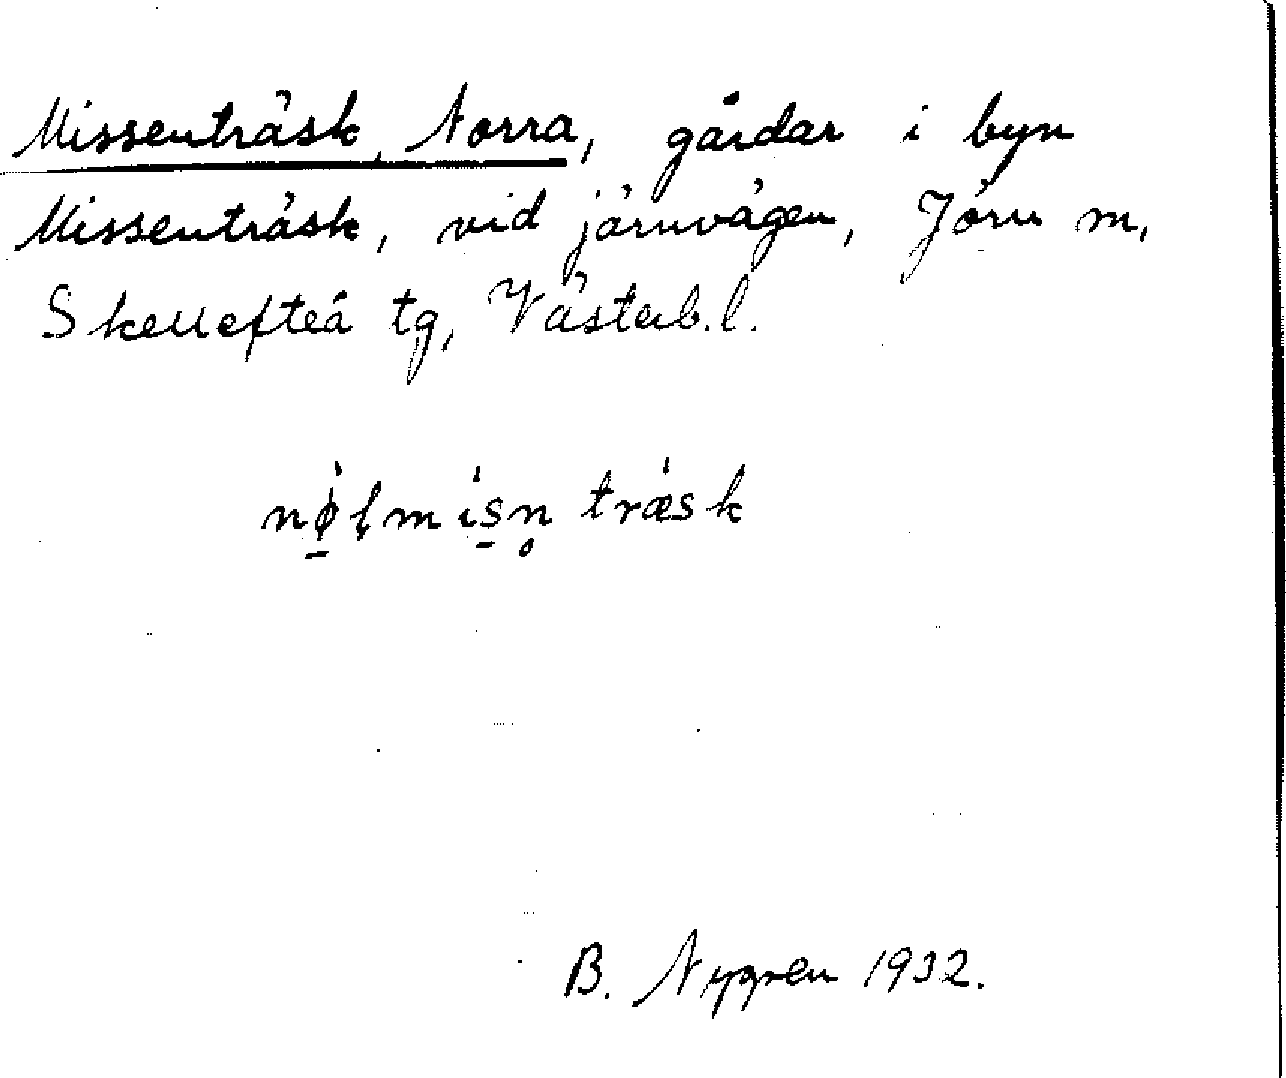 Missenträsk, Norra, gårdar i byn
Missenträsk, vid järnvägen, Jörn m,
Skellefteå tg, Västerb.l.
nø̱̀lmìs̱n̥ træ̀sk
B. Nygren 1932.